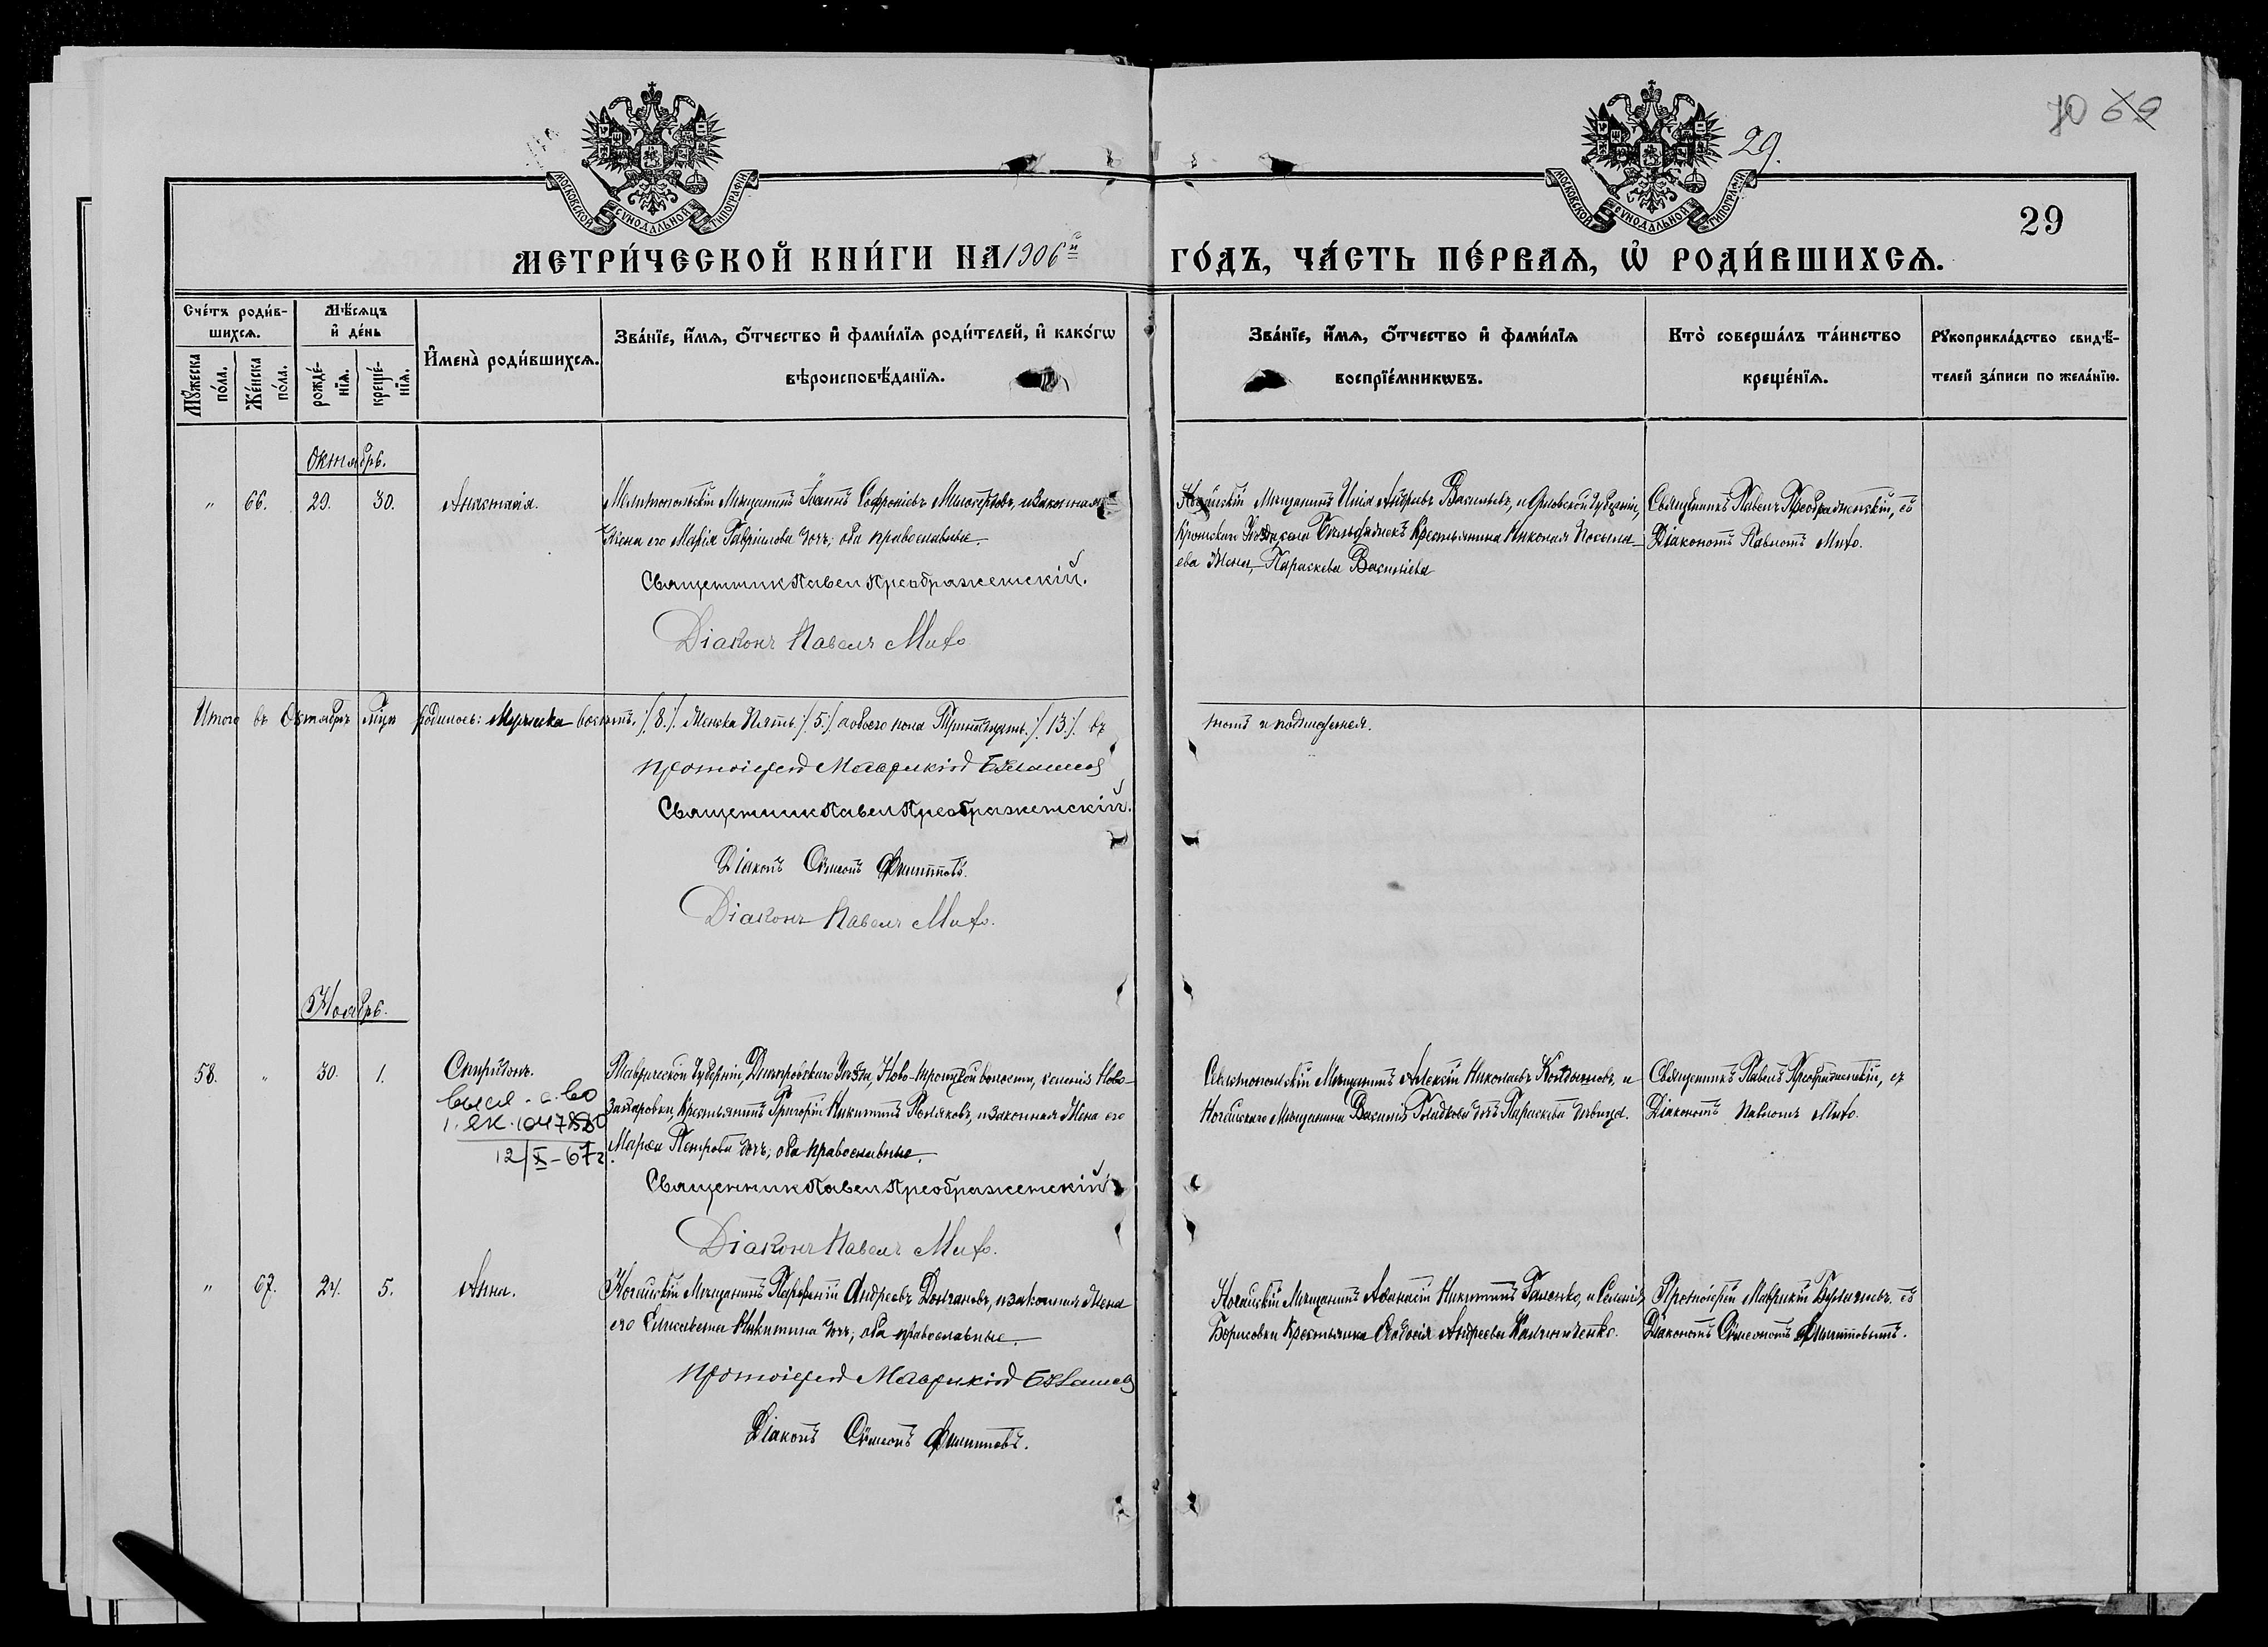 70 69
29.
29
МОСКОВСКОЙ СѴНОДАЛЬНОЙ ТИПОГРАФІИ
МОСКОВСКОЙ СѴНОДАЛЬНОЙ ТИПОГРАФІИ
МЕТРИ́ЧЕСКОЙ КНИ́ГИ НА 1906й
ГО́ДЪ, ЧА́СТЬ ПЕ́РВАѦ, Ѽ РОДИ́ВШИХСѦ.
Сче́тъ роди́в-
шихсѧ.
Мꙋ́жеска по́ла.
Же́нска по́ла.
Мѣ́сѧцъ
и҆ де́нь
рожде́-
нїѧ.
креще́-
нїѧ.
И҆мена̀ роди́вшихсѧ.
Зва́нїе, и҆́мѧ, ѻ҆́тчество и҆ фами́лїѧ роди́телей, и҆ како́гѡ
вѣроисповѣ́данїѧ.
Зва́нїе, и҆́мѧ, ѻ҆́тчество и҆ фами́лїѧ
воспрїе́мникѡвъ.
Кто̀ соверша́лъ та́инство
креще́нїѧ.
Рꙋкоприкла́дство свидѣ́-
телей за́писи по жела́нїю.
Октябрь.
" 66. 29. 30. Анастасія.
Мелитопольскій Мѣщанинъ Іоаннъ Софроніевъ и законная
Жена его Марія Гавріилова дочь; оба православные.
Священник Павел Преображенскій.
Діаконъ Павелъ Михо
Ногайскій Мѣщанинъ Илія Андреевъ Васильевъ, и Орловской Губерніи,
Кромскаго Уѣзда села Крестьянина Николая
ева Жена, Параскева Васильева
Священникъ Павелъ Преображенскій, съ
Діакономъ Павломъ Михо.
Итого въ Октябрѣ м-цѣ родилось: Мужеска восемь. /8./ Женска Пять /5/ а обоего пола Тринадцать. /13./ въ
томъ и подписуемся.
Протоіерей Маврикій
Священник Павел Преображенскій.
Діаконъ Сѵмеонъ Филипповъ.
Діаконъ Павелъ Михо.
Ноябрь.
58. " 30. 1. Спиридонъ.
высл. с-во
1. ЯК. 1047880
12/X-67г.
Таврической Губерніи, Днѣпровскаго Уѣзда, Ново-Троицкой волости, селенія Ново-
Крестьянинъ Григорій Никитинъ Поляковъ, и законная Жена его
Марѳа Петрова дочь; оба православные.
Священник Павел Преображенскій
Діаконъ Павелъ Михо.
Мѣщанинъ Алексій Николаевъ и
Ногайскаго Мѣщанина Василія Гладкова дочь Параскева девица.
Священникъ Павелъ Преображенскій, съ
Діакономъ Павломъ Михо.
" 67. 24. 5. Анна.
Ногайскій Мѣщанинъ Парфеній Андреевъ и законная Жена
его Елисавета Никитина дочь; оба православные.
Протоіерей Маврикій
Діаконъ Сѵмеонъ Филипповъ.
Ногайскій Мѣщанинъ Аѳанасій Никитинъ Галенко, и Селенія
Борисовки Крестьянка Ѳеодосія Андреева Калниченко.
Протоіерей Маврикій съ
Діакономъ Сѵмеономъ Филипповымъ.